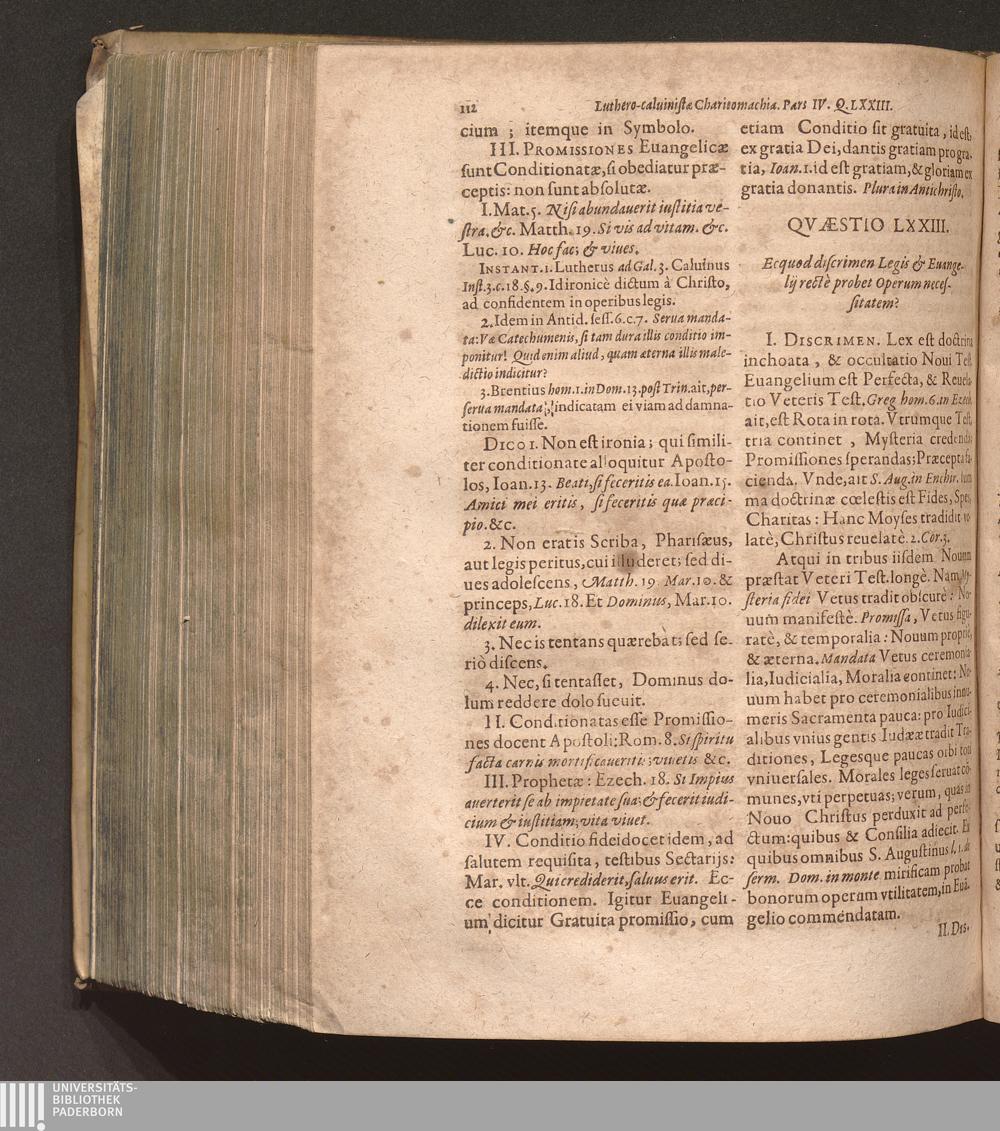 112 Luthero-caluiniſtæ Charitomachia. Pars IV. Q. LXXIII.
cium ; itemque in Symbolo.
III. PROMISSIONES Euangelicæ
ſunt Conditionatæ, ſi obediatur præ-
ceptis: non ſunt abſolutæ.
I. Mat. 5. Niſi abundauerit iuſtitia ve-
ſtra. &c. Matth. 19. Si vis ad vitam. &c.
Luc. 10. Hoc fac; & viues.
INSTANT. 1. Lutherus ad Gal. 3. Caluinus
Inſt. 3. c. 18. §. 9. Id ironicè dictum à Chriſto,
ad confidentem in operibus legis.
2. Idem in Antid. ſeſſ. 6. c. 7. Serua manda-
ta: Væ Catechumenis, ſi tam dura illis conditio im-
ponitur! Quid enim aliud, quam æterna illis male-
dictio indicitur?
3. Brentius hom. 1. in Dom. 13. poſt Trin. ait, per-
ſerua mandata, indicatam ei viam ad damna-
tionem fuiſſe.
DICO 1. Non eſt ironia; qui ſimili-
ter conditionate alloquitur Apoſto-
los, Ioan. 13. Beati, ſi feceritis ea. Ioan. 15.
Amici mei eritis, ſi feceritis quæ præci-
pio. &c.
2. Non eratis Scriba, Phariſæus,
aut legis peritus, cui illuderet; ſed di-
ues adoleſcens, Matth. 19. Mar. 10. &
princeps, Luc. 18. Et Dominus, Mar. 10.
dilexit eum.
3. Nec is tentans quærebat; ſed ſe-
riò diſcens.
4. Nec, ſi tentaſſet, Dominus do-
lum reddere dolo ſueuit.
II. Conditionatas eſſe Promiſſio-
nes docent Apoſtoli: Rom. 8. Si ſpiritu
facta carnis mortificaueritis; viuetis &c.
III. Prophetæ: Ezech. 18. Si Impius
auerterit ſe ab impietate ſua; & fecerit iudi-
cium & iuſtitiam; vita viuet.
IV. Conditio fidei docet idem, ad
ſalutem requiſita, teſtibus Sectarijs:
Mar. vlt. Qui crediderit, ſaluus erit. Ec-
ce conditionem. Igitur Euangeli-
um dicitur Gratuita promiſſio, cum
etiam Conditio ſit gratuita, id eſt,
ex gratia Dei, dantis gratiam pro gra-
tia, Ioan. 1. id eſt gratiam, & gloriam ex
gratia donantis. Plura in Antichriſto.
QVÆSTIO LXXIII.
Ecquod diſcrimen Legis & Euange-
lij rectè probet Operum neceſ-
ſitatem?
I. DISCRIMEN. Lex eſt doctrina
inchoata, & occultatio Noui Teſt.
Euangelium eſt Perfecta, & Reuela-
tio Veteris Teſt. Greg hom. 6. in Ezech.
ait, eſt Rota in rota. Vtrumque Teſt.
tria continet, Myſteria credenda;
Promiſſiones ſperandas; Præcepta fa-
cienda. Vnde, ait S. Aug. in Enchir.
ma doctrinæ cœleſtis eſt Fides, Spes,
Charitas: Hanc Moyſes tradidit ve-
latè, Chriſtus reuelatè. 2. Cor. 3.
Atqui in tribus iiſdem Nouum
præſtat Veteri Teſt. longè. Nam My-
ſteria fidei Vetus tradit obſcurè: No-
uum manifeſtè. Promiſſa, Vetus figu-
ratè, & temporalia: Nouum propriè,
& æterna. Mandata Vetus ceremonia-
lia, Iudicialia, Moralia continet: No-
uum habet pro ceremonialibus innu-
meris Sacramenta pauca: pro Iudici-
alibus vnius gentis Iudææ tradit Tra-
ditiones, Legesque paucas orbi toti
vniuerſales. Morales leges ſeruat cō-
munes, vti perpetuas; verum, quas in
Nouo Chriſtus perduxit ad perfe-
ctum: quibus & Conſilia adiecit. Ex
quibus omnibus S. Auguſtinus l. 1. de
ſerm. Dom. in monte mirificam probat
bonorum operum vtilitatem, in Eua-
gelio commendatam.
II. Dis-
UNIVERSITÄTS-
BIBLIOTHEK
PADERBORN